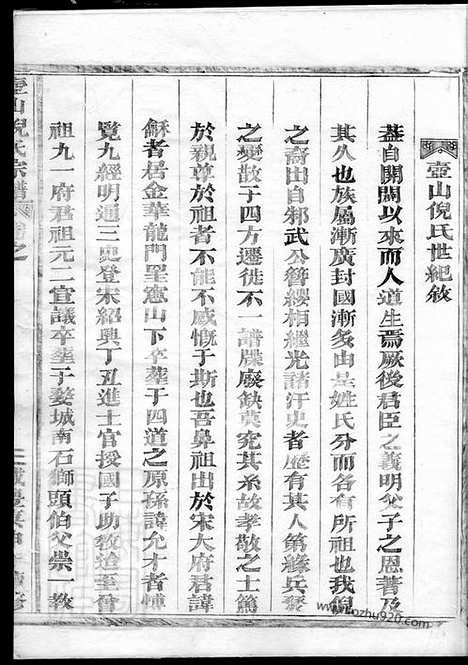 壼山倪氏世紀敘
蓋自開闢以來而人道生焉厥後君臣之義明父子之恩著及
其久也族屬漸廣封國漸多由是姓氏分而各有所祖也我倪
之裔出自邾武公簪纓相繼光諸汗史者歷有其人第緣兵燹
之變散于四方遷徙不一譜牒廢缺莫究其系故孝敬之士篤
於親尊於祖者不能不感慨于斯也吾鼻祖出於宋大府君諱
穌者居金華龍門里意山下卒葬于四道之原孫諱允才者博
覽九經明通三史登宋紹興丁丑進士官授國子助敎迨至曾
祖九一府君祖元二宣議卒葬于婺城南石獅頭伯父崇一敎
壼山倪氏宗譜
卷之
修
www.ozhu920.com